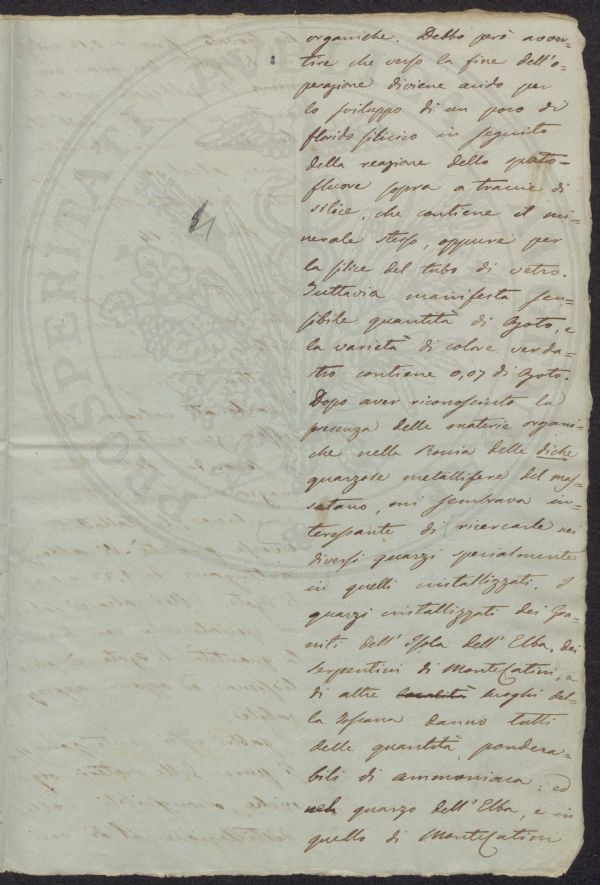 organiche. Debbo però avver-
tire che verso la fine dell'o-
perazione diviene acido per
lo sviluppo di un poco di
fluorido silicico in seguito
della reazione dello spato-
fluore sopra a traccie di
silice, che contiene il mi-
nerale stesso, oppure per
la silice del tubo di vetro.
Tuttavia manifesta sen-
sibile quantità di Azoto, e
la varietà di colore verda-
stro contiene 0,07 di Azoto.
Dopo aver riconosciuto la
presenza delle materie organi-
che nella Roccia delle diche
quarzose metallifere del mas-
setano, mi sembrava in-
teressante di ricercarle nei
diversi quarzi specialmente
in quelli cristallizzati. I
quarzi cristallizzati dei Gra-
niti dell'Isola dell'Elba, dei
serpentini di MonteCatini, e
di altre località luoghi del-
la Toscana danno tutti
delle quantità pondera-
bili di ammoniaca: ed
nel quarzo dell'Elba, e in
quello di MonteCatini
PROSPERITATI